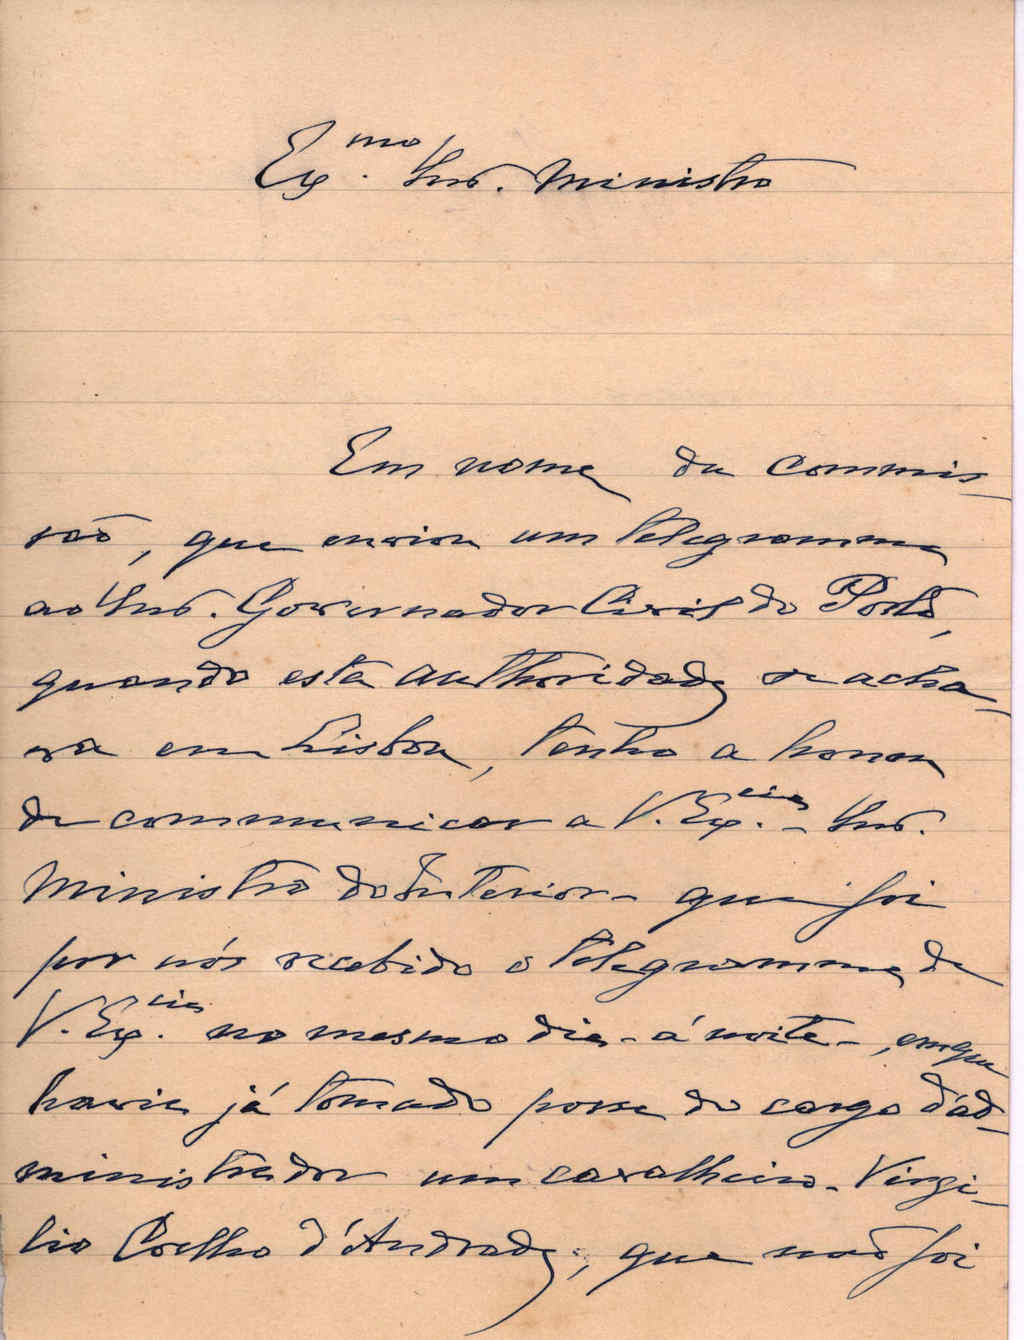 Ex.mo Snr. Ministro
Em nome da commis-
são, que enviou um telegramma
ao Snr. Governador Civil do Porto,
quando esta authoridade se acha-
va em Lisboa, tenho a honra
de communicar a V. Ex.cia - Snr.
Ministro do Interior - que foi
por nós recebido o telegramma de
V. Ex.cia no mesmo dia - á noite -, em que
havia já tomado posse do cargo d'ad-
ministrador um cavalheiro - Virgi-
lio Coelho d'Andrade, que não foi